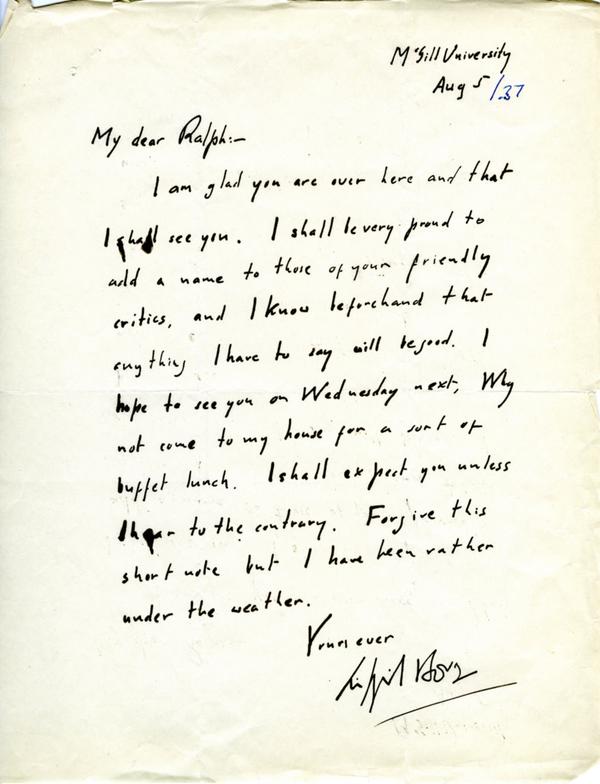 McGill University
Aug 5 /37
My dear Ralph:—
I am glad you are over here and that
I shall see you. I shall be very proud to
add a name to those of your friendly
critics, and I know beforehand that
anything I have to say will be good. I
hope to see you on Wednesday next, Why
not come to my house for a sort of
buffet lunch. I shall expect you unless
I hear to the contrary. Forgive this
short note but I have been rather
under the weather.
Yours ever